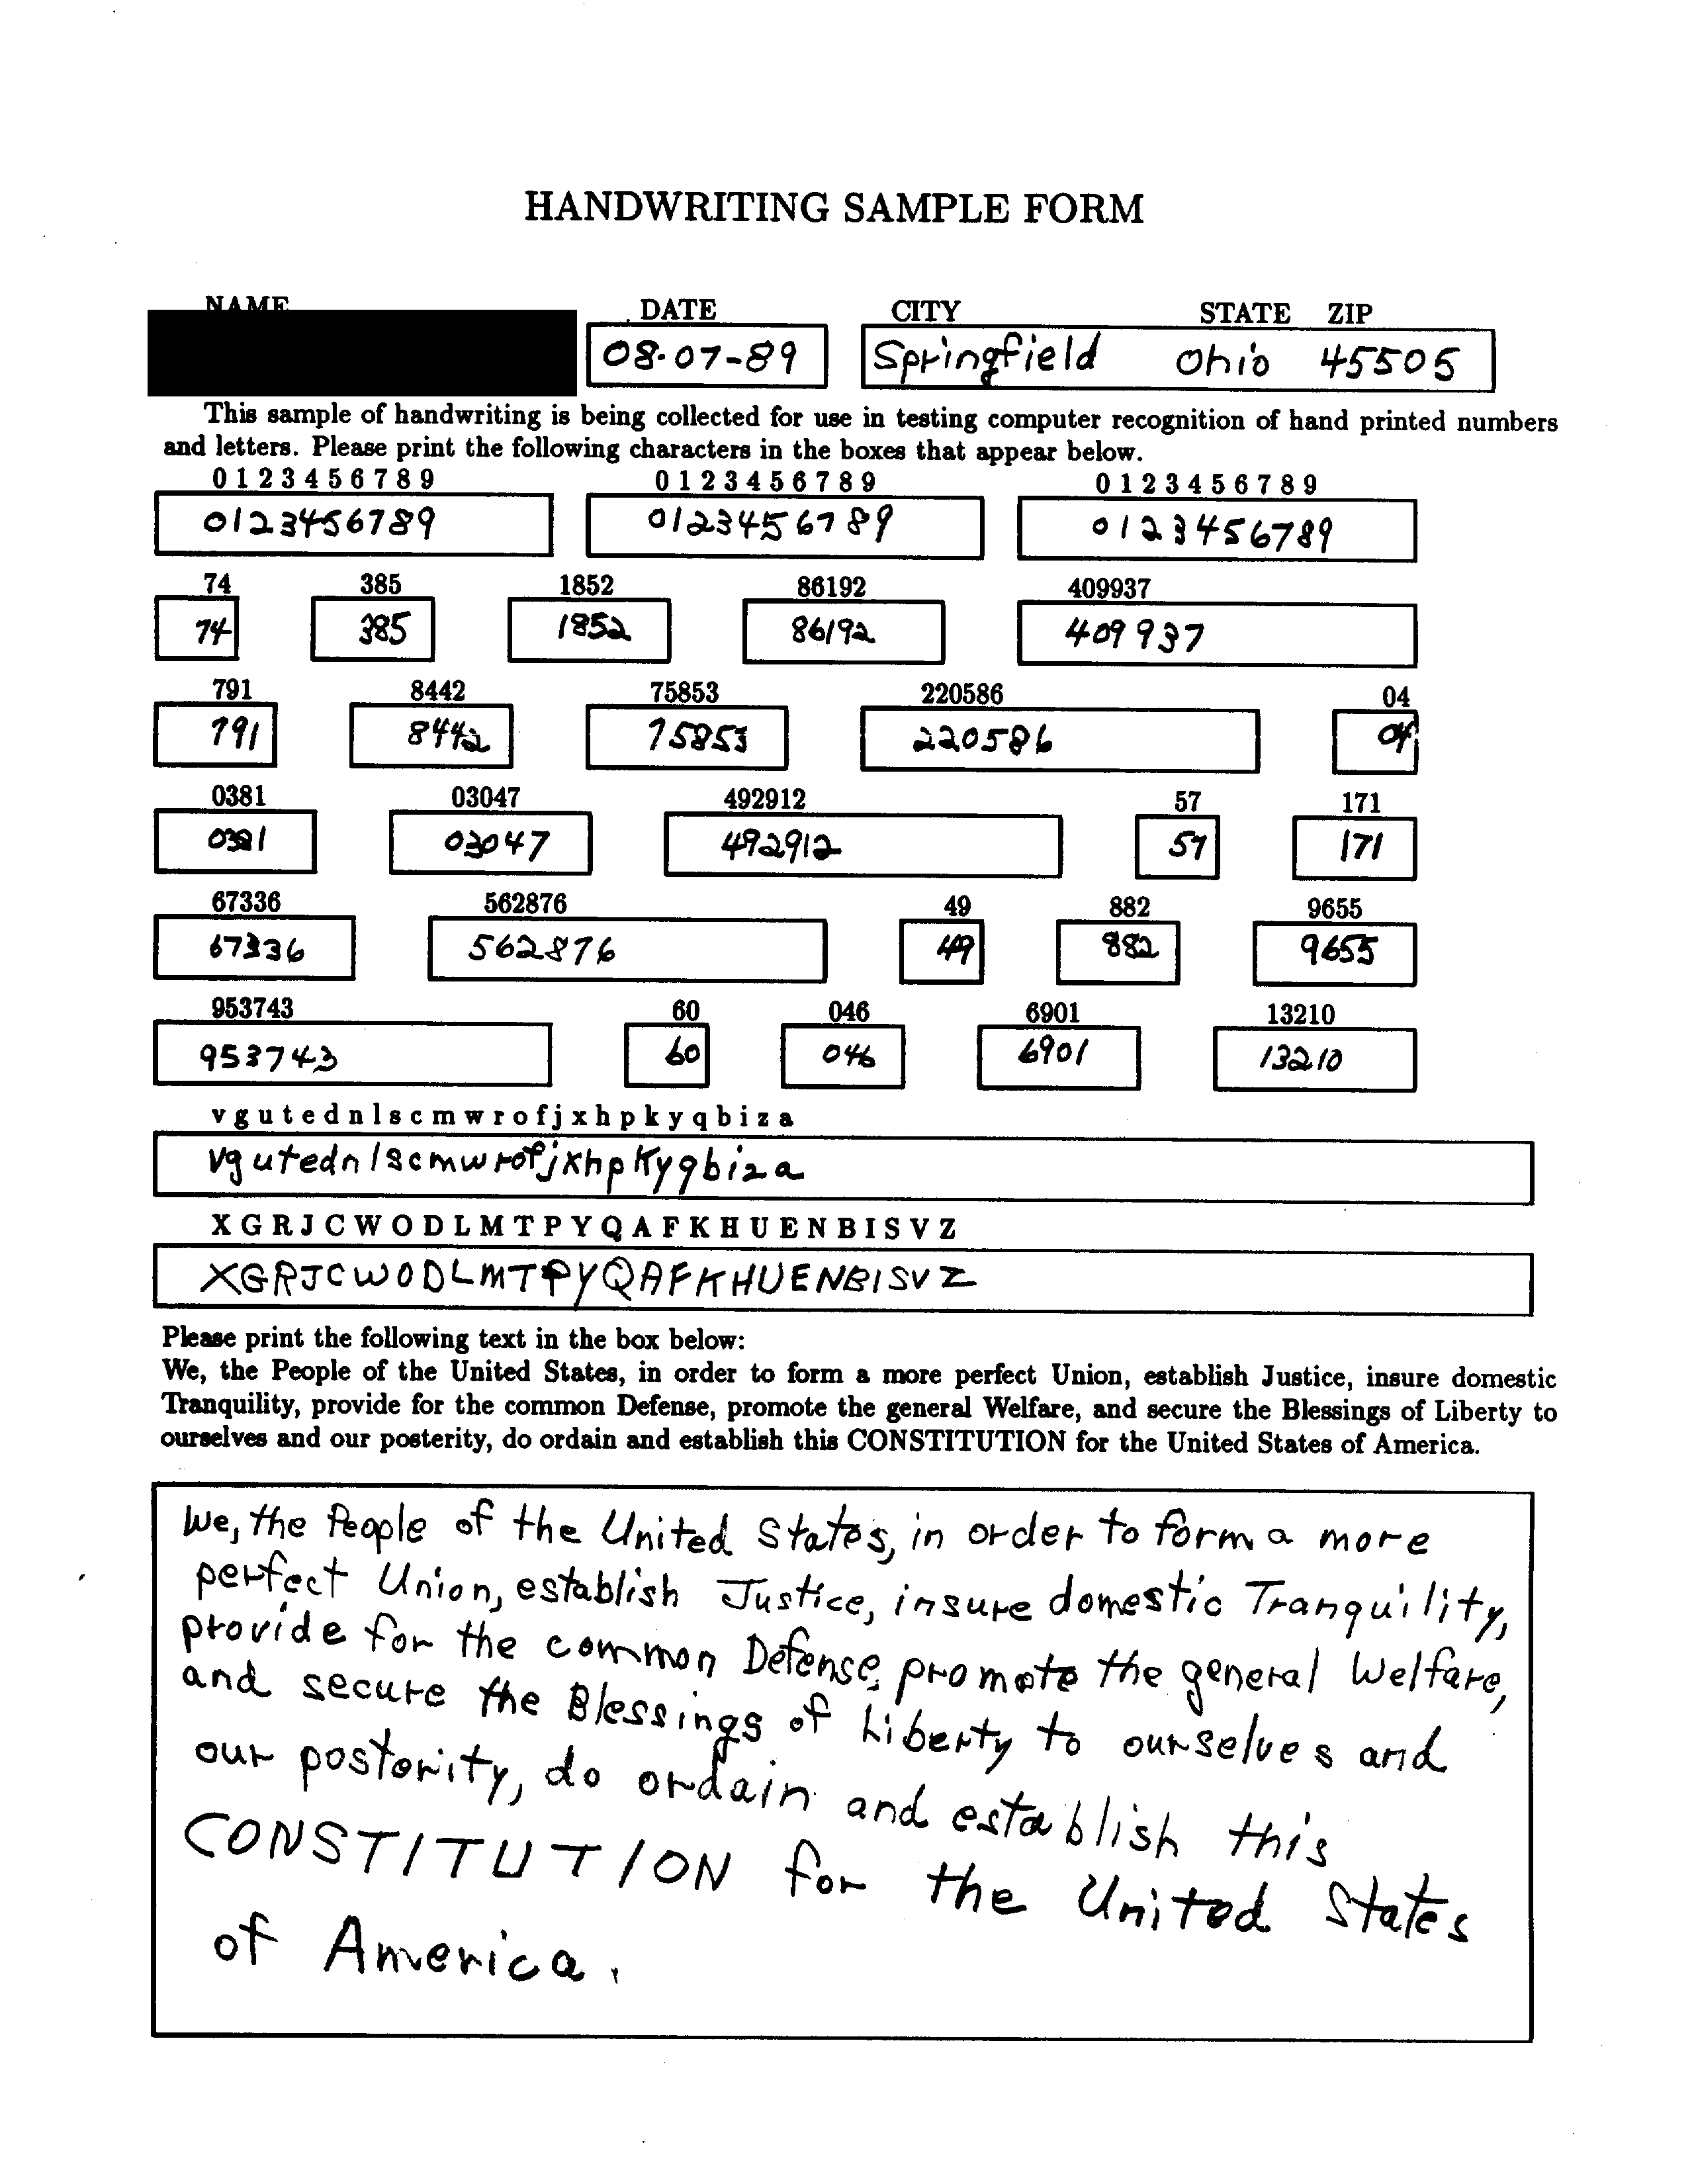 HANDWRITING SAMPLE FORM
NAME DATE CITY STATE ZIP
08-07-89 Springfield Ohio 45505
This sample of handwriting is being collected for use in testing computer recognition of hand printed numbers
and letters. Please print the following characters in the boxes that appear below.
0 1 2 3 4 5 6 7 8 9 0 1 2 3 4 5 6 7 8 9 0 1 2 3 4 5 6 7 8 9
0123456789 0123456789 0123456789
74 385 1852 86192 409937
74 385 1852 86192 409937
791 8442 75853 220586 04
791 8442 75853 220586 04
0381 03047 492912 57 171
0381 03047 492912 57 171
67336 562876 49 882 9655
67336 562876 49 882 9655
953743 60 046 6901 13210
953743 60 046 6901 13210
v g u t e d n l s c m w r o f j x h p k y q b i z a
vgutednlscmwrofjxhpkyqbiza
X G R J C W O D L M T P Y Q A F K H U E N B I S V Z
XGRJCWODLMTPYQAFKHUENBISVZ
Please print the following text in the box below:
We, the People of the United States, in order to form a more perfect Union, establish Justice, insure domestic
Tranquility, provide for the common Defense, promote the general Welfare, and secure the Blessings of Liberty to
ourselves and our posterity, do ordain and establish this CONSTITUTION for the United States of America.
We, the People of the United States, in order to form a more
perfect Union, establish Justice, insure domestic Tranquility,
provide for the common Defense, promote the general Welfare,
and secure the Blessings of Liberty to ourselves and
our postority, do ordain and establish this
CONSTITUTION for the United States
of America.